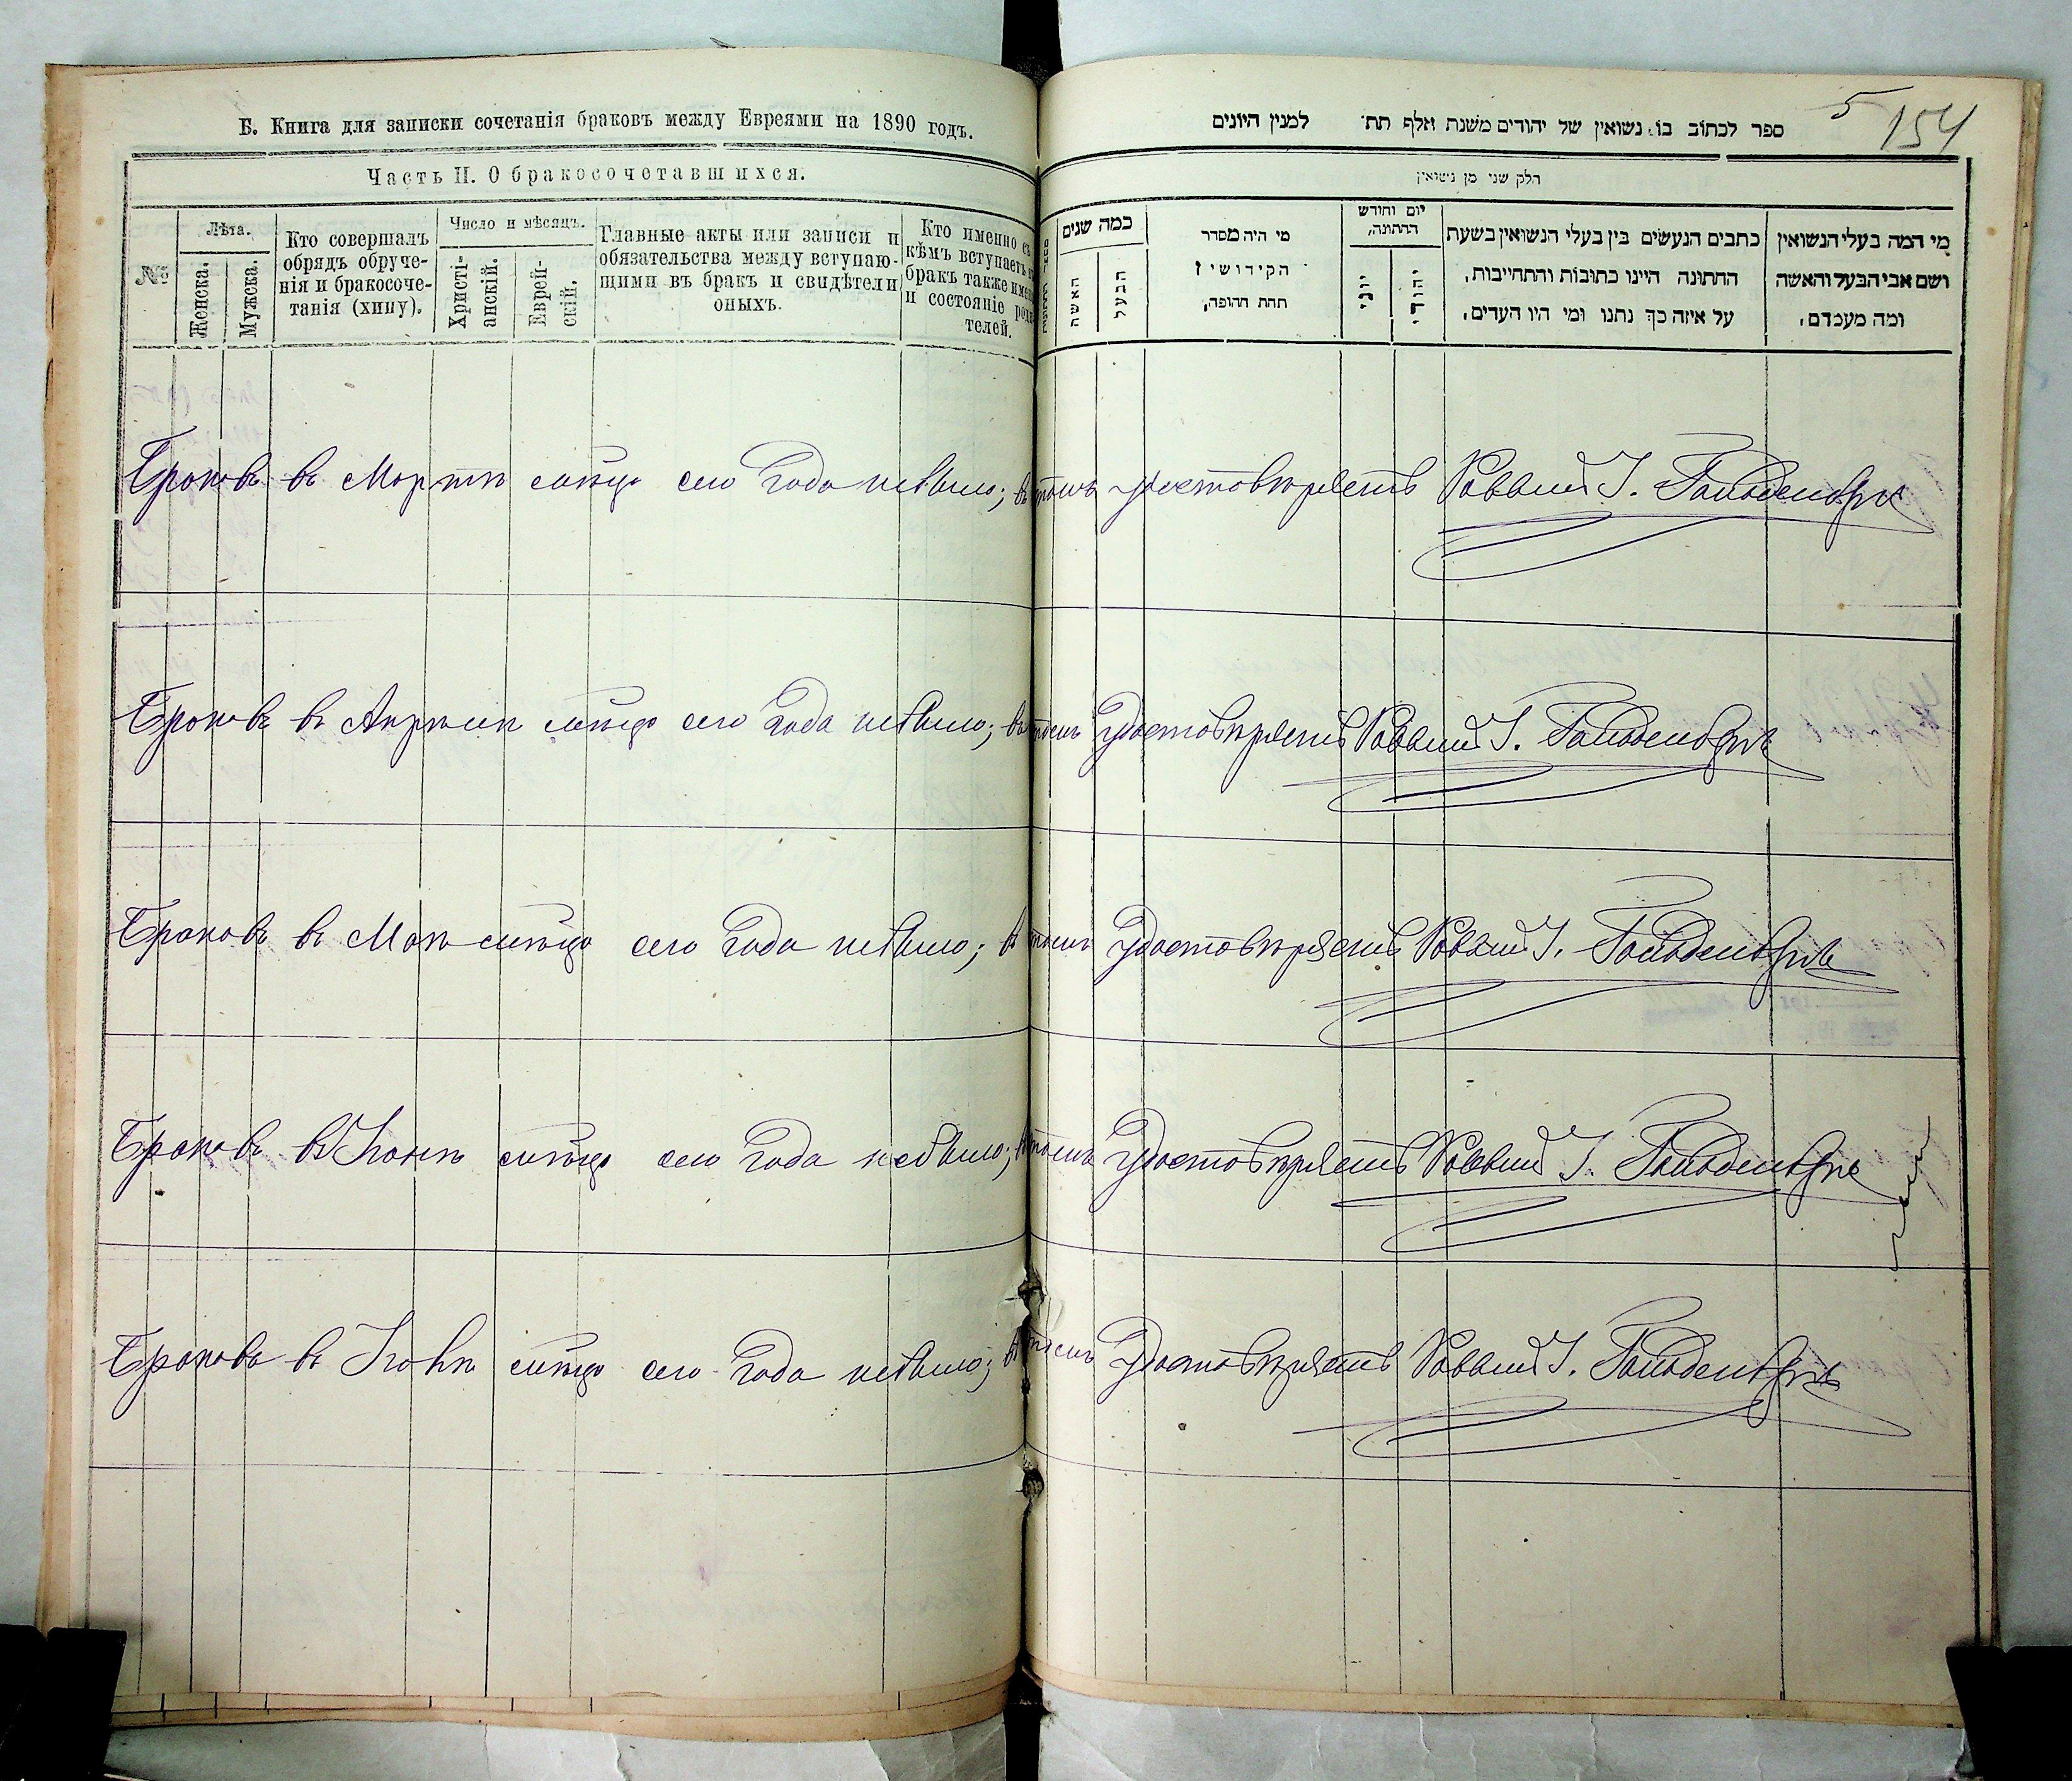 Б. Книга для записки сочетанія браковъ между Евреями на 1890 годъ.
Часть II. О бракосочетавшихся.
№
Лѣта.
Женска.
Мужска.
Кто совершалъ
обрядъ обруче-
нія и бракосоче-
танія (хипу).
Число и мѣсяцъ.
Христі-
анскій.
Еврей-
скій.
Главные акты или записи и
обязательства между вступаю-
щими въ бракъ и свидѣтели
оныхъ.
Кто именно съ
кѣмъ вступаетъ въ
бракъ также имена
и состояніе роди-
телей.
5
154
ספר לכתוב בו נשואין של יהודים משנת אלף תת למנין היונים
חלק שני מן נישואין
מי המה בעלי הנשואין
ושם אבי הבעל והאשה
ומה מעמדם.
כתבים הנעשים בין בעלי הנשואין בשעת
החתונה היינו כתובות והתחייבות,
על איזה כך נתנו ומי היו העדים.
יום וחודש
החתונה,
יהודי
יוני
מי היה מסדר
הקידושין
תחת החופה,
כמה שנים
הבעל
האשה
Браковъ въ Мартѣ мѣсяцѣ сего года небыло; въ томъ удостовѣряетъ Раввинъ І.
Браковъ въ Апрѣлѣ мѣсяцѣ сего года небыло; въ томъ удостовѣряетъ Раввинъ І.
Браковъ въ Маѣ мѣсяцѣ сего года небыло; въ томъ удостовѣряетъ Раввинъ І.
Браковъ въ Іюнѣ мѣсяцѣ сего года небыло; въ томъ удостовѣряетъ Раввинъ І.
Браковъ въ Іюлѣ мѣсяцѣ сего года небыло; въ томъ удостовѣряетъ Раввинъ І.